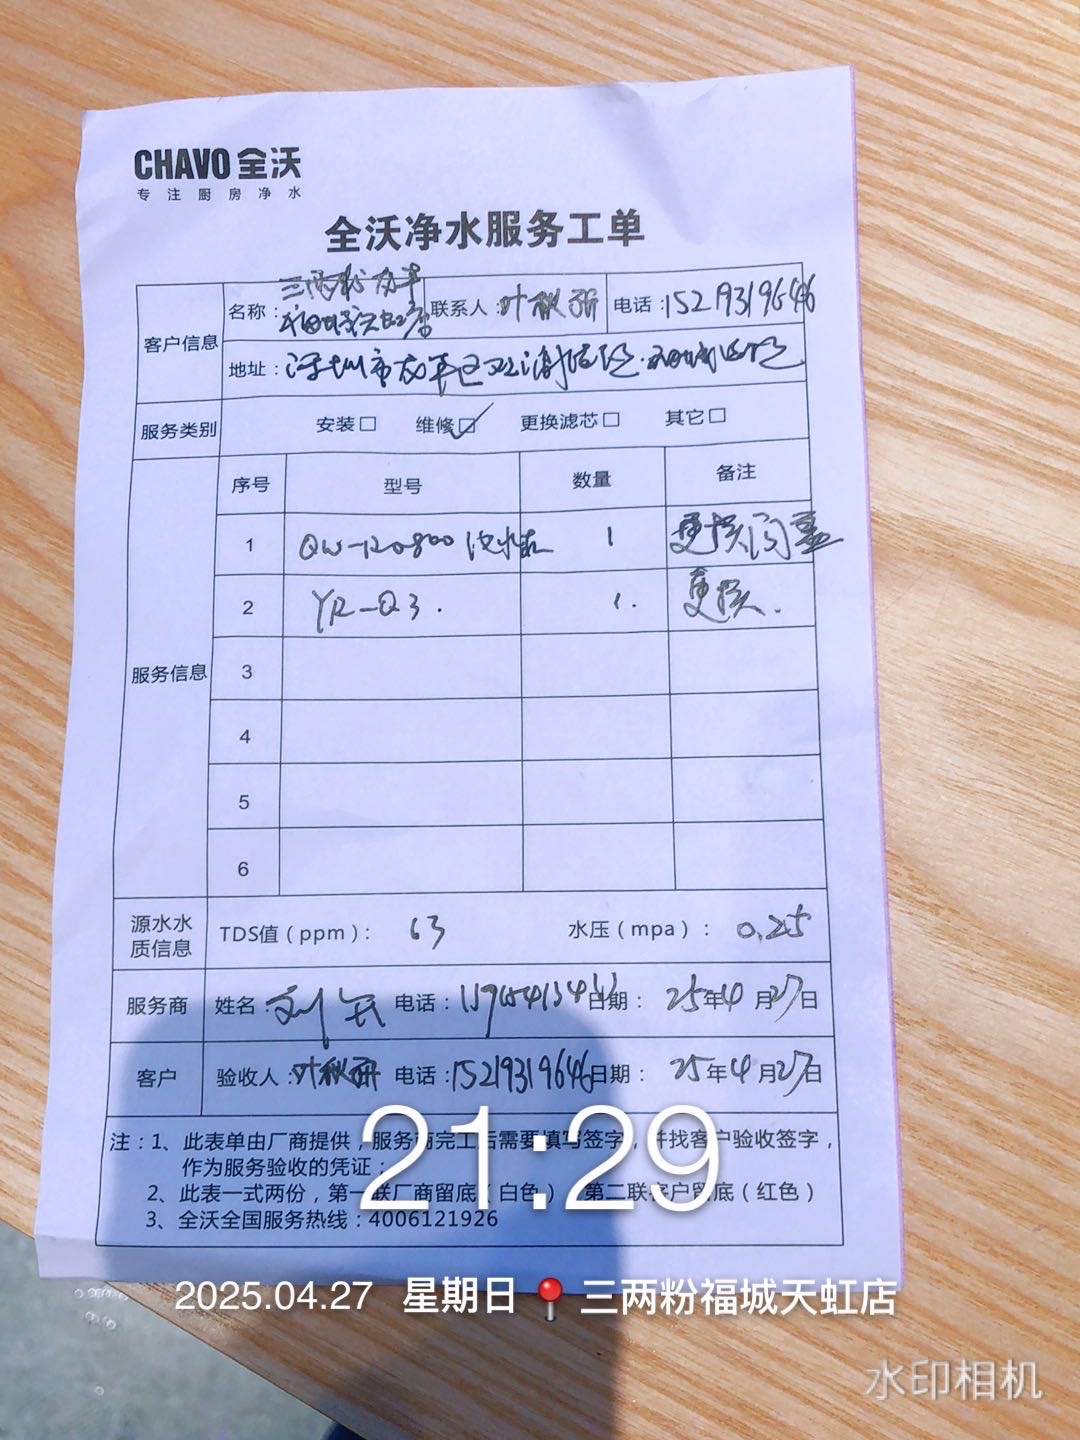 CHAVO 全沃
专注厨房净水
全沃净水服务工单
客户信息
名称：三两粉龙华
福城天虹店
联系人：叶秋研
电话：15219319646
地址：深圳市龙华区观澜
服务类别
安装□ 维修☑ 更换滤芯□ 其它□
服务信息
序号 型号 数量 备注
1 QW-RO800 净水机 1 更换阀盖
2 YR-Q3. 1. 更换.
3
4
5
6
源水水质信息
TDS值（ppm）： 63 水压（mpa）： 0.25
服务商 姓名：刘 电话： 日期： 25年4月27日
客户 验收人：叶秋研 电话：15219319646 日期： 25年4月27日
注：1、此表单由厂商提供，服务商完工后需要填写签字，并找客户验收签字，
作为服务验收的凭证；
2、此表一式两份，第一联厂商留底（白色），第二联客户留底（红色）
3、全沃全国服务热线：4006121926
21:29
2025.04.27 星期日 三两粉福城天虹店
水印相机